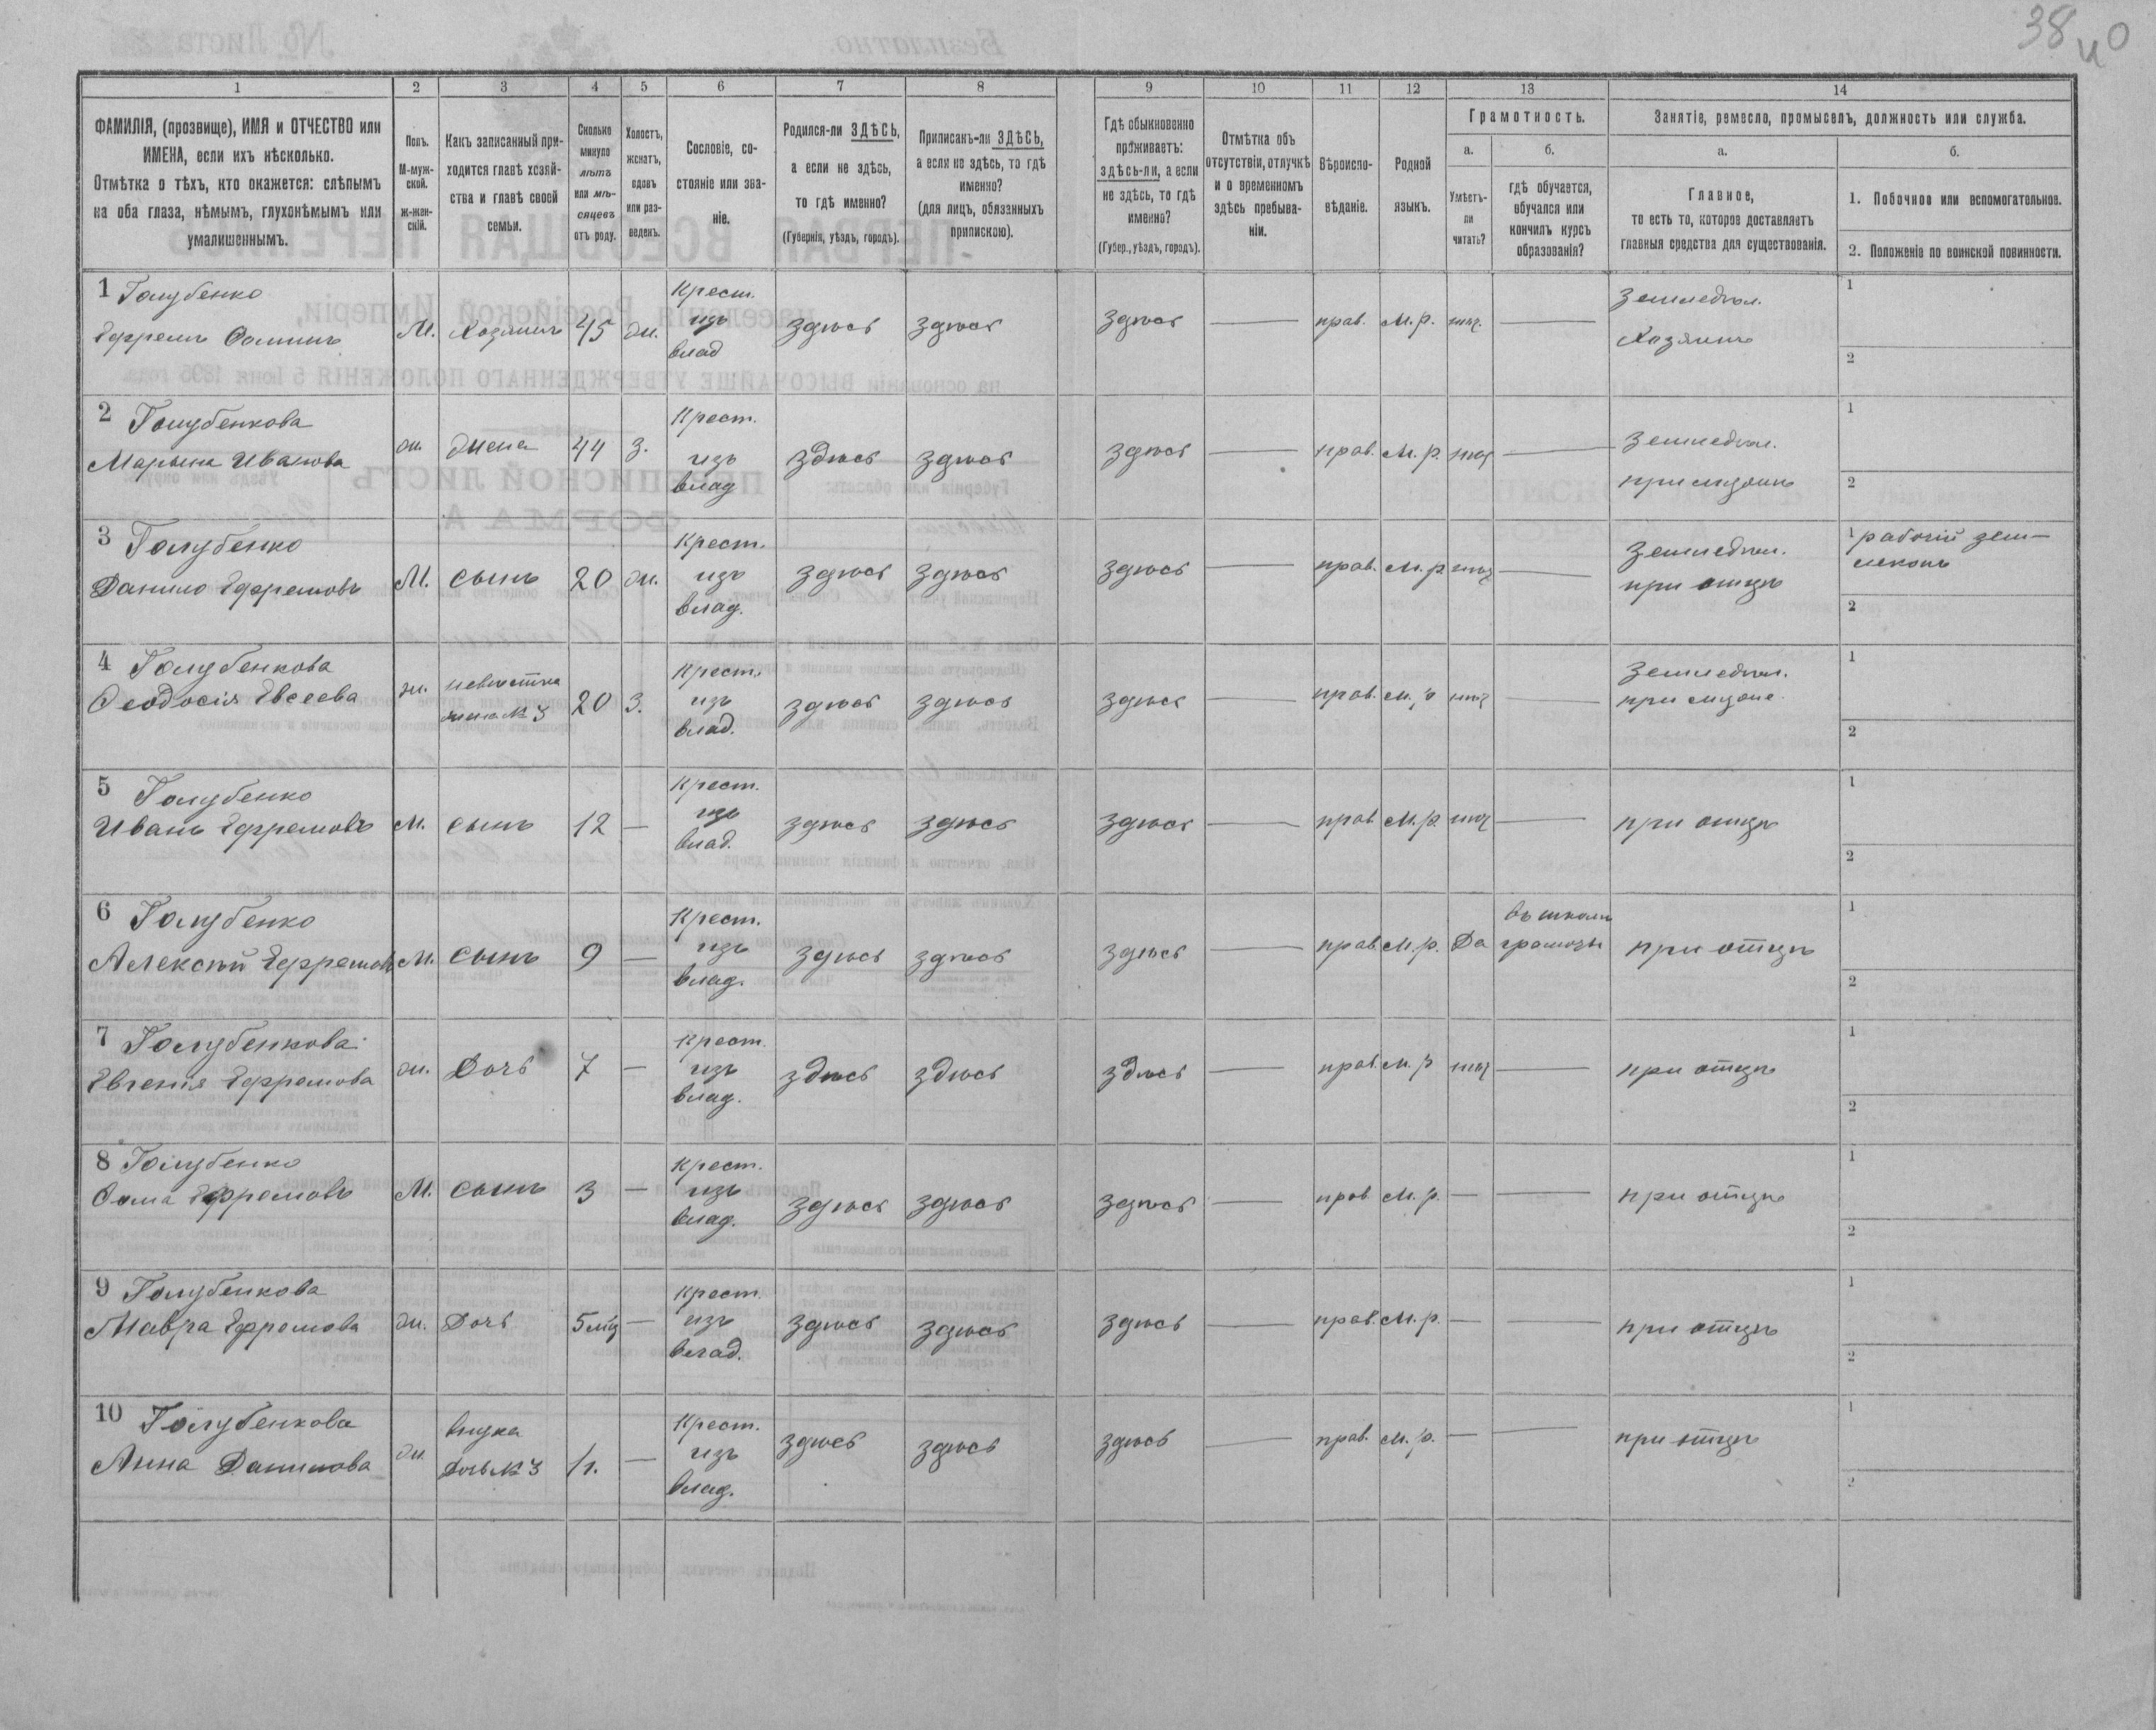 38
1
2
3
4
5
6
7
8
9
10
11
12
13
14
ФАМИЛІЯ, (прозвище), ИМЯ и ОТЧЕСТВО или
ИМЕНА, если ихъ нѣсколько.
Отмѣтка о тѣхъ, кто окажется: слѣпымъ
на оба глаза, нѣмымъ, глухонѣмымъ или
умалишеннымъ.
Полъ.
М-муж-
ской.
Ж-жен-
скій.
Какъ записанный при-
ходится главѣ хозяй-
ства и главѣ своей
семьи.
Сколько
минуло
лѣтъ
или мѣ-
сяцевъ
отъ роду.
Холостъ,
женатъ,
вдовъ
или раз-
веденъ.
Сословіе, со-
стояніе или зва-
ніе.
Родился-ли ЗДѢСЬ,
а если не здѣсь,
то гдѣ именно?
(Губернія, уѣздъ, городъ).
Приписанъ-ли ЗДѢСЬ,
а если не здѣсь, то гдѣ
именно?
(для лицъ, обязанныхъ
припискою).
Гдѣ обыкновенно
проживаетъ:
здѣсь-ли, а если
не здѣсь, то гдѣ
именно?
(Губер., уѣздъ, городъ).
Отмѣтка объ
отсутствіи, отлучкѣ
и о временномъ
здѣсь пребыва-
ніи.
Вѣроиспо-
вѣданіе.
Родной
языкъ.
Грамотность.
а.
Умѣетъ-
ли
читать?
б.
гдѣ обучается,
обучался или
кончилъ курсъ
образованія?
Занятіе, ремесло, промыселъ, должность или служба.
а.
Главное,
то есть то, которое доставляетъ
главныя средства для существованія.
б.
1. Побочное или вспомогательное.
2. Положеніе по воинской повинности.
1 Голубенко
Ефремъ Фоминъ
М. Хозяинъ 45 ж.
Крест.
изъ
влад
здѣсь здѣсь здѣсь — прав. М.р. нѣт. —
Земледѣл.
Хозяинъ
1
2
2 Голубенкова
Марьяна Иванова
ж. жена 44 З.
Крест.
изъ
влад
здѣсь здѣсь здѣсь — прав. М.р. —
Земледѣл.
при мужѣ
1
2
3 Голубенко
Данило Ефремовъ
М. сынъ 20 ж.
Крест.
изъ
влад.
здѣсь здѣсь здѣсь — прав. М.р —
Земледѣл.
при отцѣ
1 рабочій зем—
лекопъ
2
4 Голубенкова
Феодосія Евсеева
ж. невѣстка
жена № 3
20 З.
Крест.
изъ
влад.
здѣсь здѣсь здѣсь — прав. М.р —
Земледѣл.
при мужѣ
1
2
5 Голубенко
Иванъ Ефремовъ
М. сынъ 12 —
Крест.
изъ
влад.
здѣсь здѣсь здѣсь — прав М.р. —
при отцѣ
1
2
6 Голубенко
Алексѣй Ефремовъ
М. сынъ 9 —
Крест.
изъ
влад.
здѣсь здѣсь здѣсь — прав. М.р. Да
въ школѣ
грамоты
при отцѣ
1
2
7 Голубенкова
Евгенія Ефремова
ж. Дочь 7 —
Крест.
изъ
влад.
здѣсь здѣсь здѣсь — прав. М.р —
при отцѣ
1
2
8 Голубенко
Фома Ефремовъ
М. сынъ 3 —
Крест.
изъ
влад.
здѣсь здѣсь здѣсь — прав М.р. — —
при отцѣ
1
2
9 Голубенкова
Мавра Ефремова
ж. Дочь 5 мѣц —
Крест.
изъ
влад.
здѣсь здѣсь здѣсь — прав. М.р. — —
при отцѣ
1
2
10 Голубенкова
Анна Данилова
ж
внука
дочь № 3
1 г. —
Крест.
изъ
влад.
здѣсь здѣсь здѣсь — прав. М.р. — —
при отцѣ
1
2